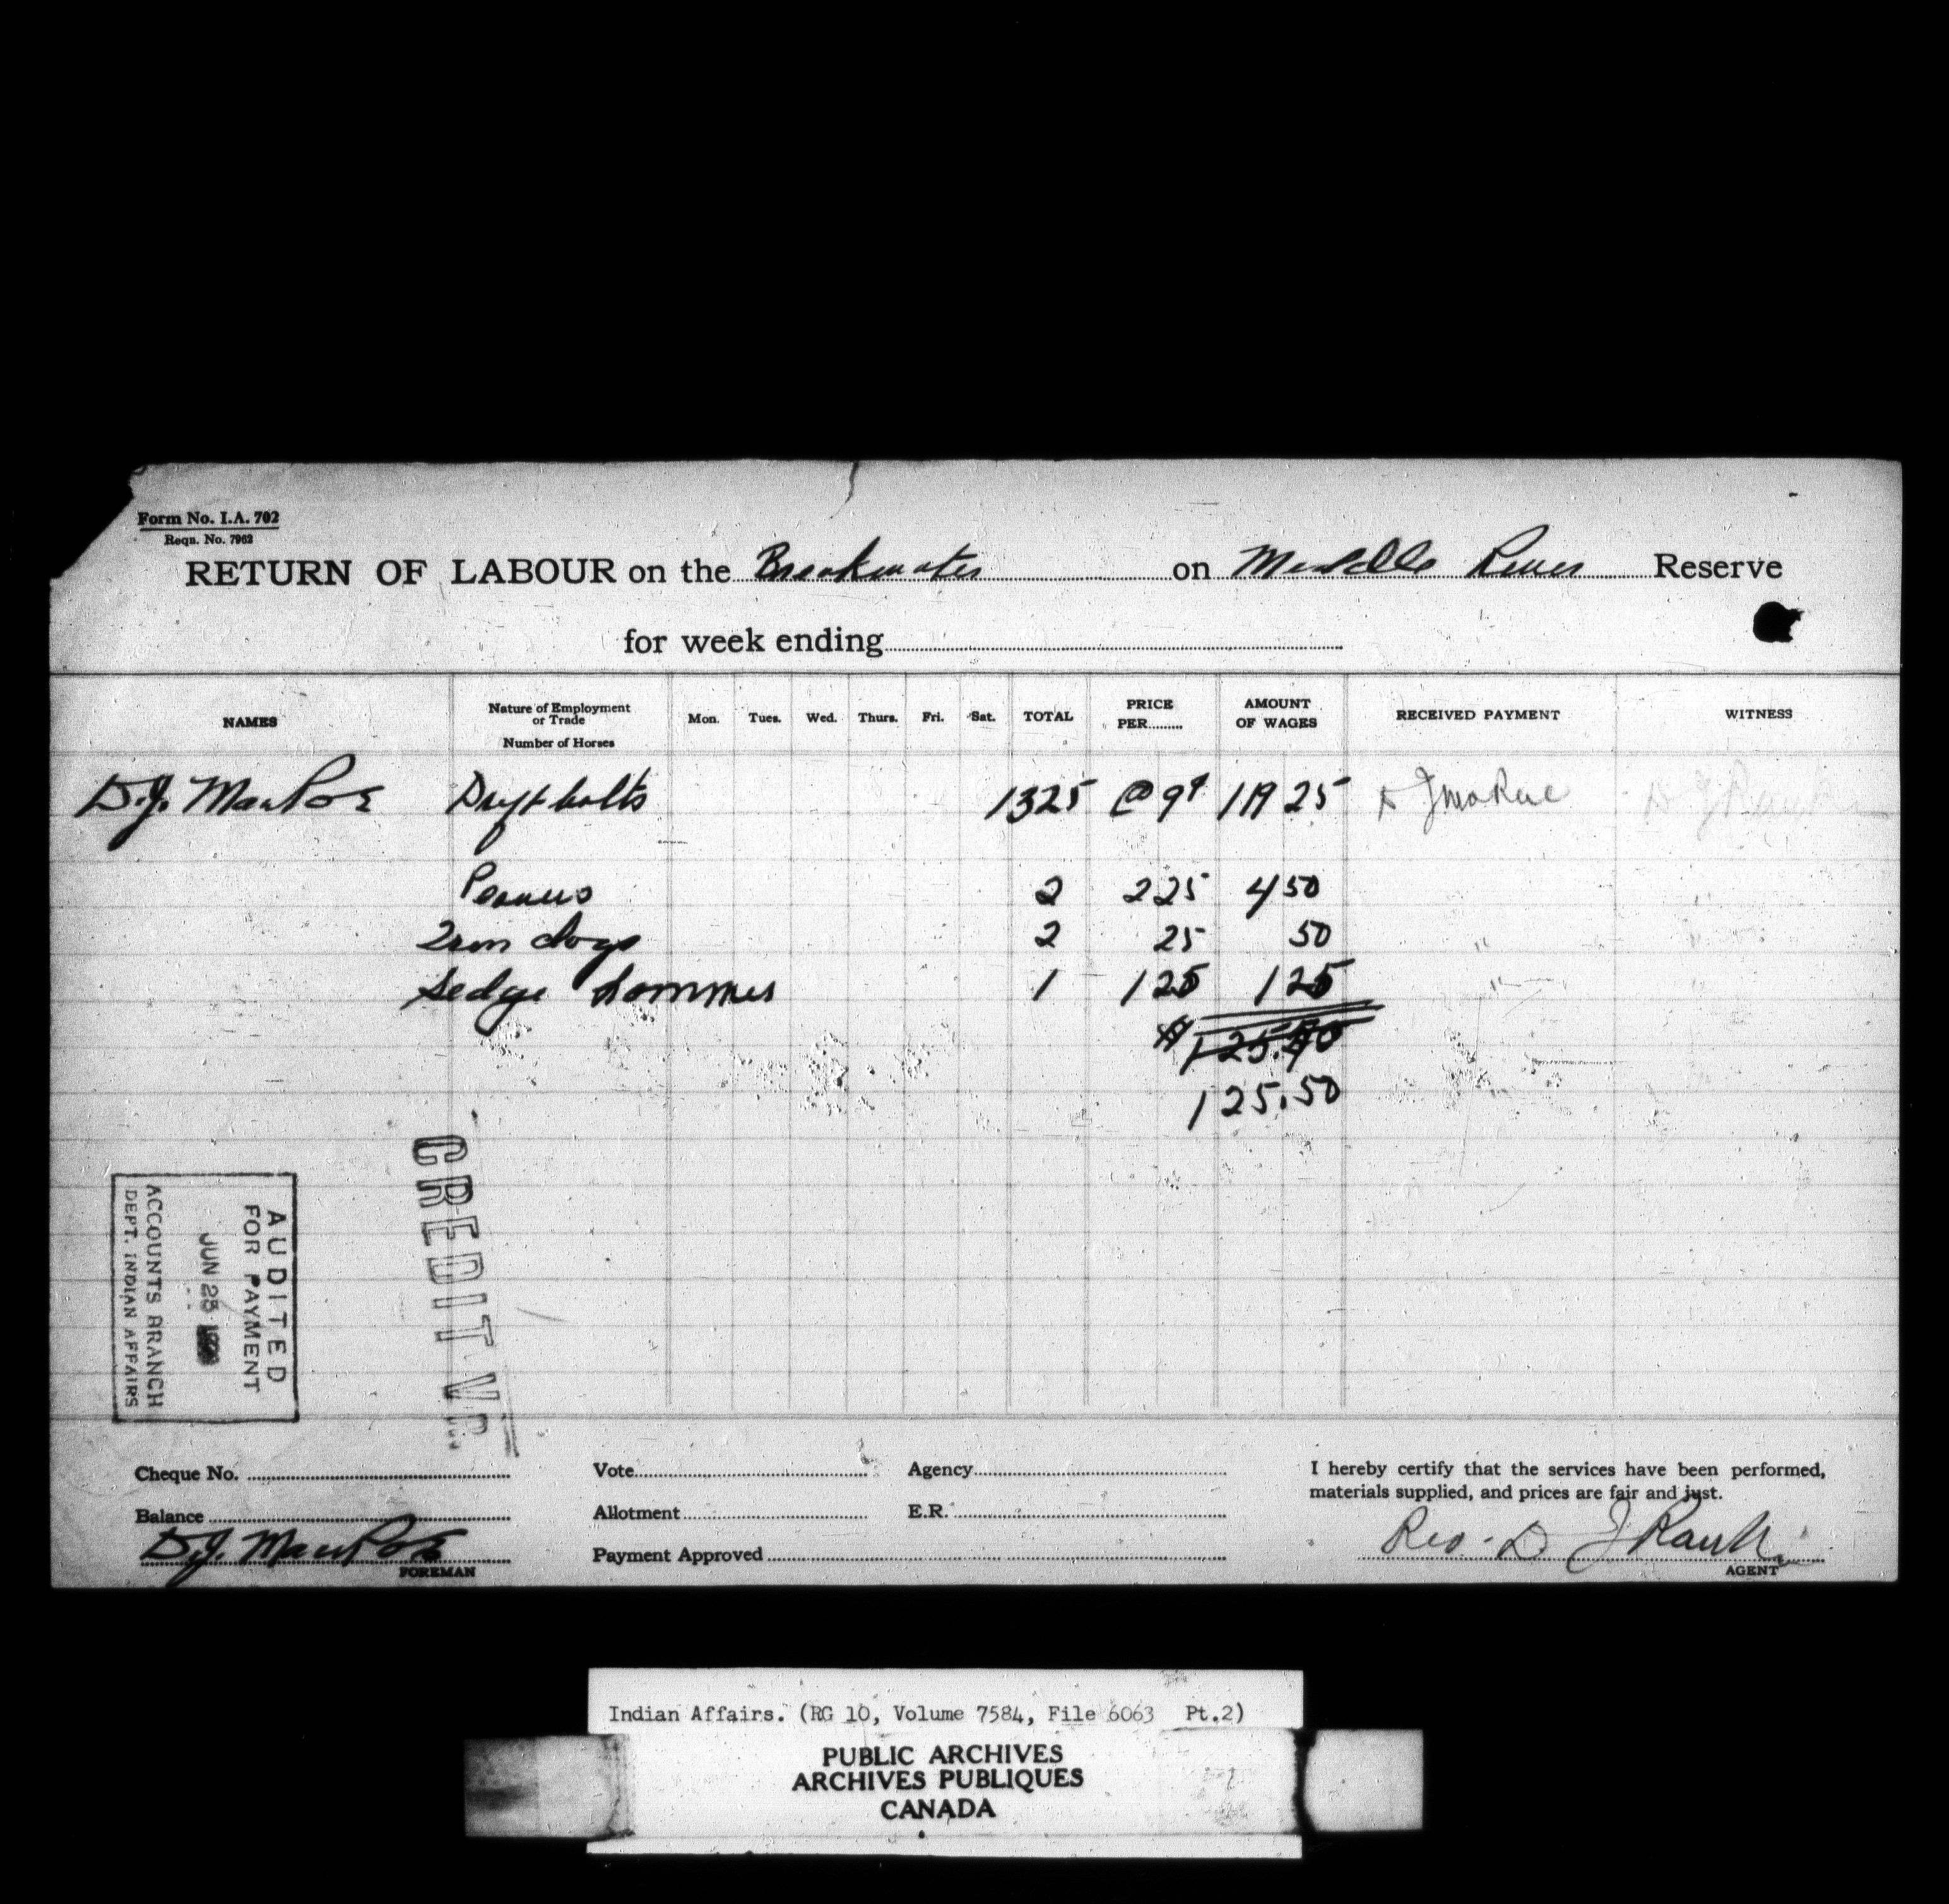 Form No. I.A. 702
Reqn. No. 7962
RETURN OF LABOUR on the Breakwater on Middle River Reserve
for week ending
NAMES Nature of Employment or Trade Number of Horses Mon. Tues. Wed. Thurs. Fri. Sat. TOTAL PRICE PER AMOUNT OF WAGES RECEIVED PAYMENT WITNESS
D.J. MacRae Driftbolts 1325 @ 9¢ 119 25 D J McRae
Peavies 2 2 25 4 50
Iron dogs 2 25 50 "
Sedge hammer 1 1 25 1 25 "
125.50
AUDITED
FOR PAYMENT
JUN 25
ACCOUNTS BRANCH
DEPT. INDIAN AFFAIRS
CREDIT
Cheque No. Vote Agency I hereby certify that the services have been performed,
materials supplied, and prices are fair and just.
Balance Allotment E.R.
D.J. MacRae Payment Approved Rev. D J Rankin
FOREMAN AGENT
Indian Affairs. (RG 10, Volume 7584, File 6063 Pt.2)
PUBLIC ARCHIVES
ARCHIVES PUBLIQUES
CANADA